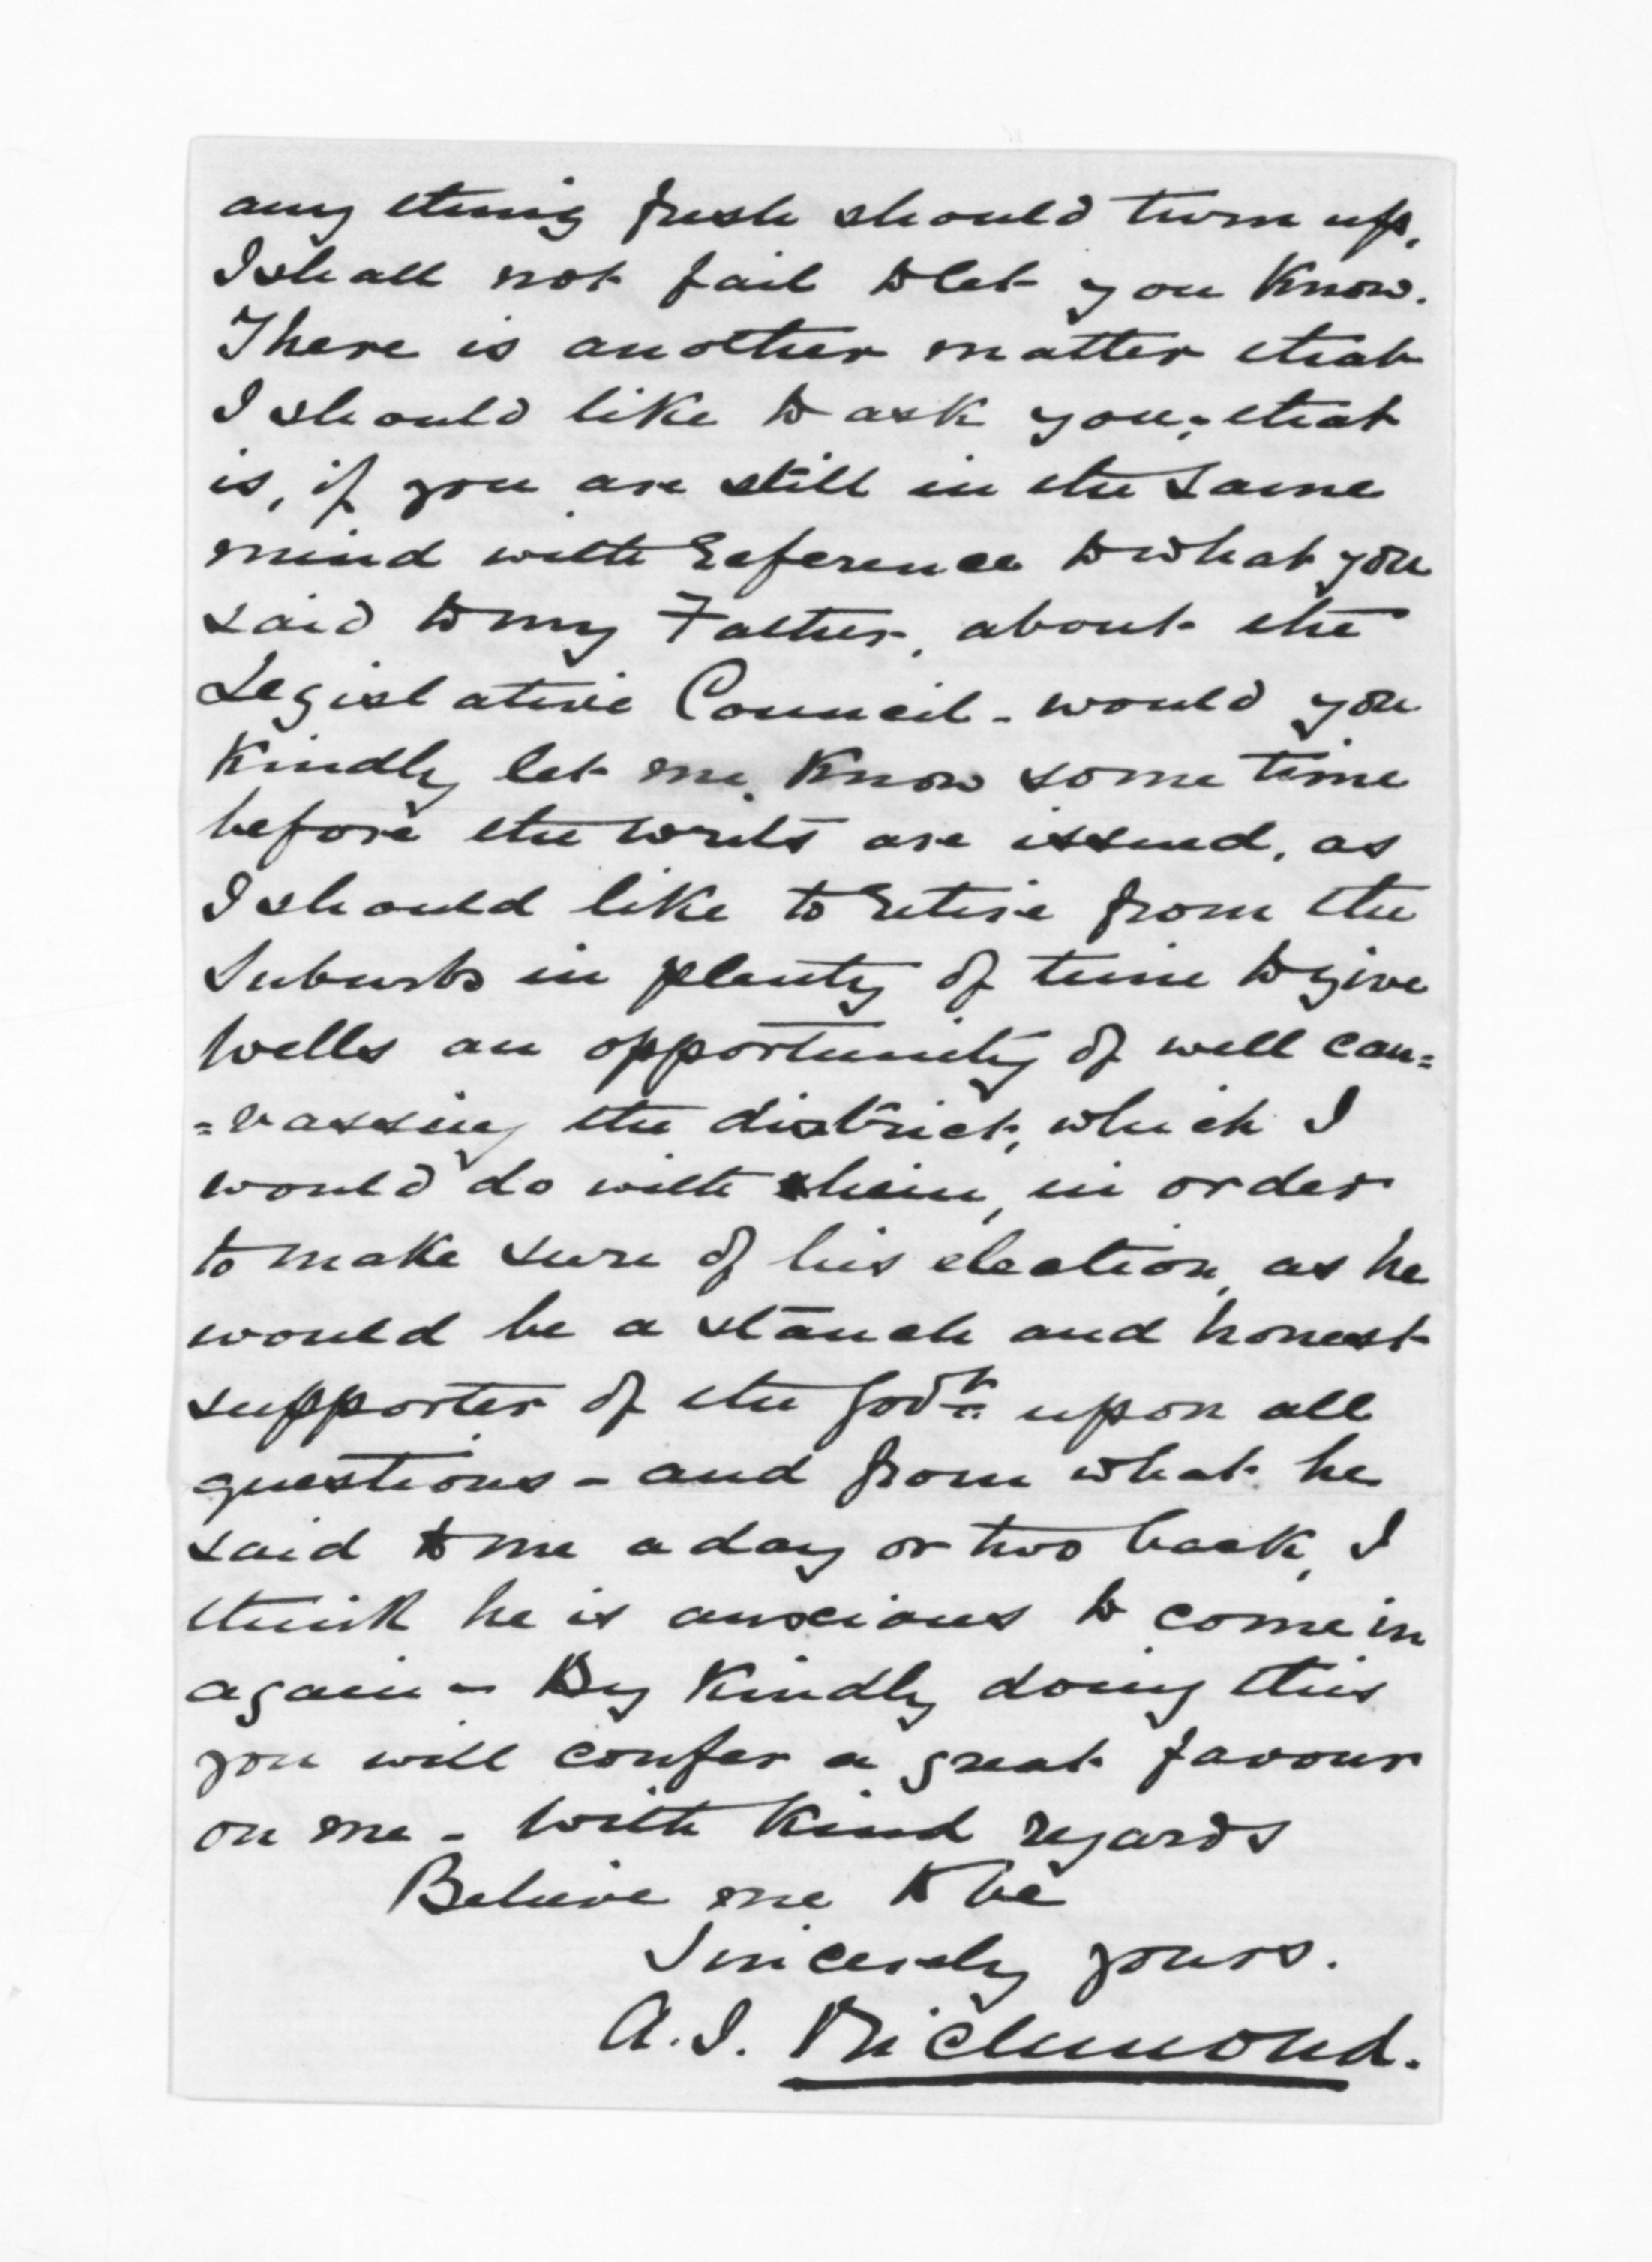 any thing fresh should turn up,
I shall not fail to let you Know.
There is another matter that
I should like to ask you; that
is, if you are still in the same
mind with reference to what you
said to my Father, about the
Legislative Council - would you
Kindly let me Know some time
before the writs are issued, as
I should like to retire from the
Suburbs in plenty of time to give
Wells an opportunity of well can=
=vassing the district, which I
would do with him, in order
to make sure of his election, as he
would be a stanch and honest
supporter of the Govt. upon all
questions - and from what he
said to me a day or two back, I
think he is anxious to come in
again - By Kindly doing this
you will confer a great favour
on me - With Kind regards
Believe me to be
Sincerely yours.
A.J. Richmond.